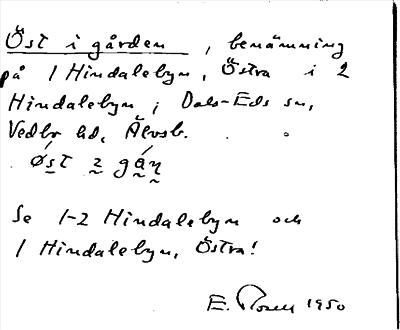 Öst i gården, benämning
på 1 Hindalebyn, Östra i 2
Hindalebyn; Dals-Eds sn,
Vedbo hd, Älvsb.
Se 1-2 Hindalebyn och
1 Hindalebyn, Östra!
E. 1950